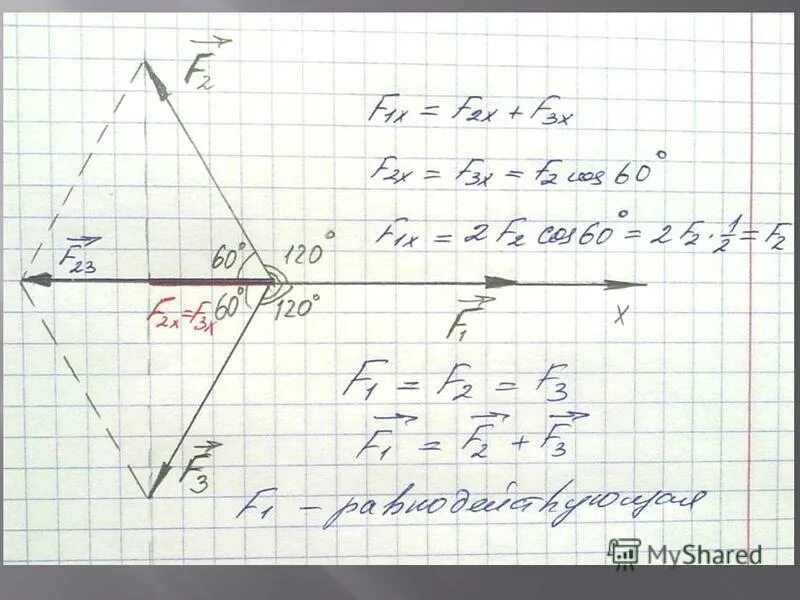 F₂
F₁ₓ = F₂ₓ + F₃ₓ
F₂ₓ = F₃ₓ = F₂ cos 60°
F₁ₓ = 2 F₂ cos 60° = 2 F₂ · 1/2 = F₂
60° 120°
F₂₃
F₂ₓ = F₃ₓ 60° 120°
F₁
x
F₁ = F₂ = F₃
F₁ = F₂ + F₃
F₃
F₁ – равнодействующая
MyShared